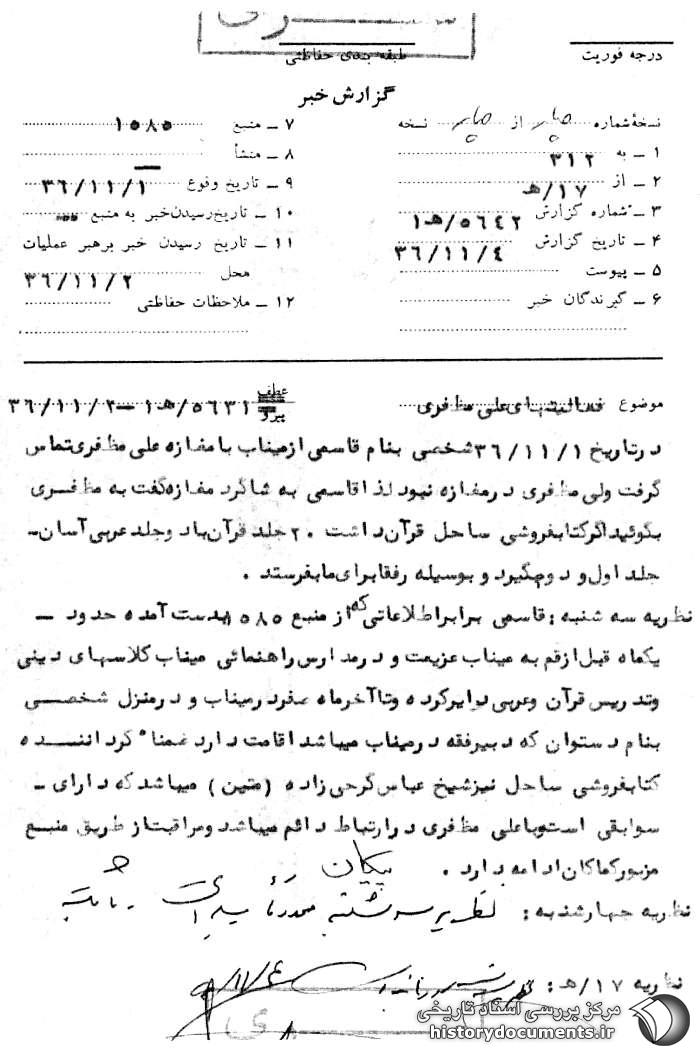 سری
درجه فوریت
طبقه بندی حفاظتی
گزارش خبر
نسخهٔ شماره چهار از چهار نسخه
۱ ـ به ۳۱۲
۲ ـ از ۱۷/هـ
۳ ـ شماره گزارش ۵۶۴۲/هـ۱
۴ ـ تاریخ گزارش ۳۶/۱۱/۴
۵ ـ پیوست
۶ ـ گیرندگان خبر
۷ ـ منبع ۱۵۸۵
۸ ـ منشأ
۹ ـ تاریخ وقوع ۳۶/۱۱/۱
۱۰ ـ تاریخ رسیدن خبر به منبع
۱۱ ـ تاریخ رسیدن خبر برهبر عملیات
محل ۳۶/۱۱/۲
۱۲ ـ ملاحظات حفاظتی
موضوع فعالیتهای علی مظفری
عطف
پیرو ۵۶۳۱/هـ۱ ـ ۳۶/۱۱/۲
در تاریخ ۳۶/۱۱/۱ شخصی بنام قاسمی از میناب با مغازه علی مظفری تماس
گرفت ولی مظفری در مغازه نبود لذا قاسمی به شاگرد مغازه گفت به مظفری
بگوئید اگر کتابفروشی ساحل قرآن داشت ۲۰ جلد قرآن با دو جلد عربی آسان ـ
جلد اول و دوم بگیرد و بوسیله رفقا برای ما بفرستد .
نظریه سه شنبه : قاسمی برابر اطلاعاتی که از منبع ۱۵۸۵ بدست آمده حدود ـ
یکماه قبل از قم به میناب عزیمت و در مدارس راهنمائی میناب کلاسهای دینی
وتدریس قرآن وعربی دایر کرده وتا آخرماه صفر در میناب و در منزل شخصی
بنام دستوان که دبیر فقه در میناب میباشد اقامت دارد ضمنا" گرداننده
کتابفروشی ساحل نیز شیخ عباس گرجی زاده (متین) میباشد که دارای ـ
سوابقی است وبا علی مظفری در ارتباط دائم میباشد ومراقبت از طریق منبع
مزبور کماکان ادامه دارد . پیکان
نظریه چهارشنبه : نظریه سه شنبه مورد تأیید است
نظریه ۱۷/هـ :
مرکز بررسی اسناد تاریخی
historydocuments.ir